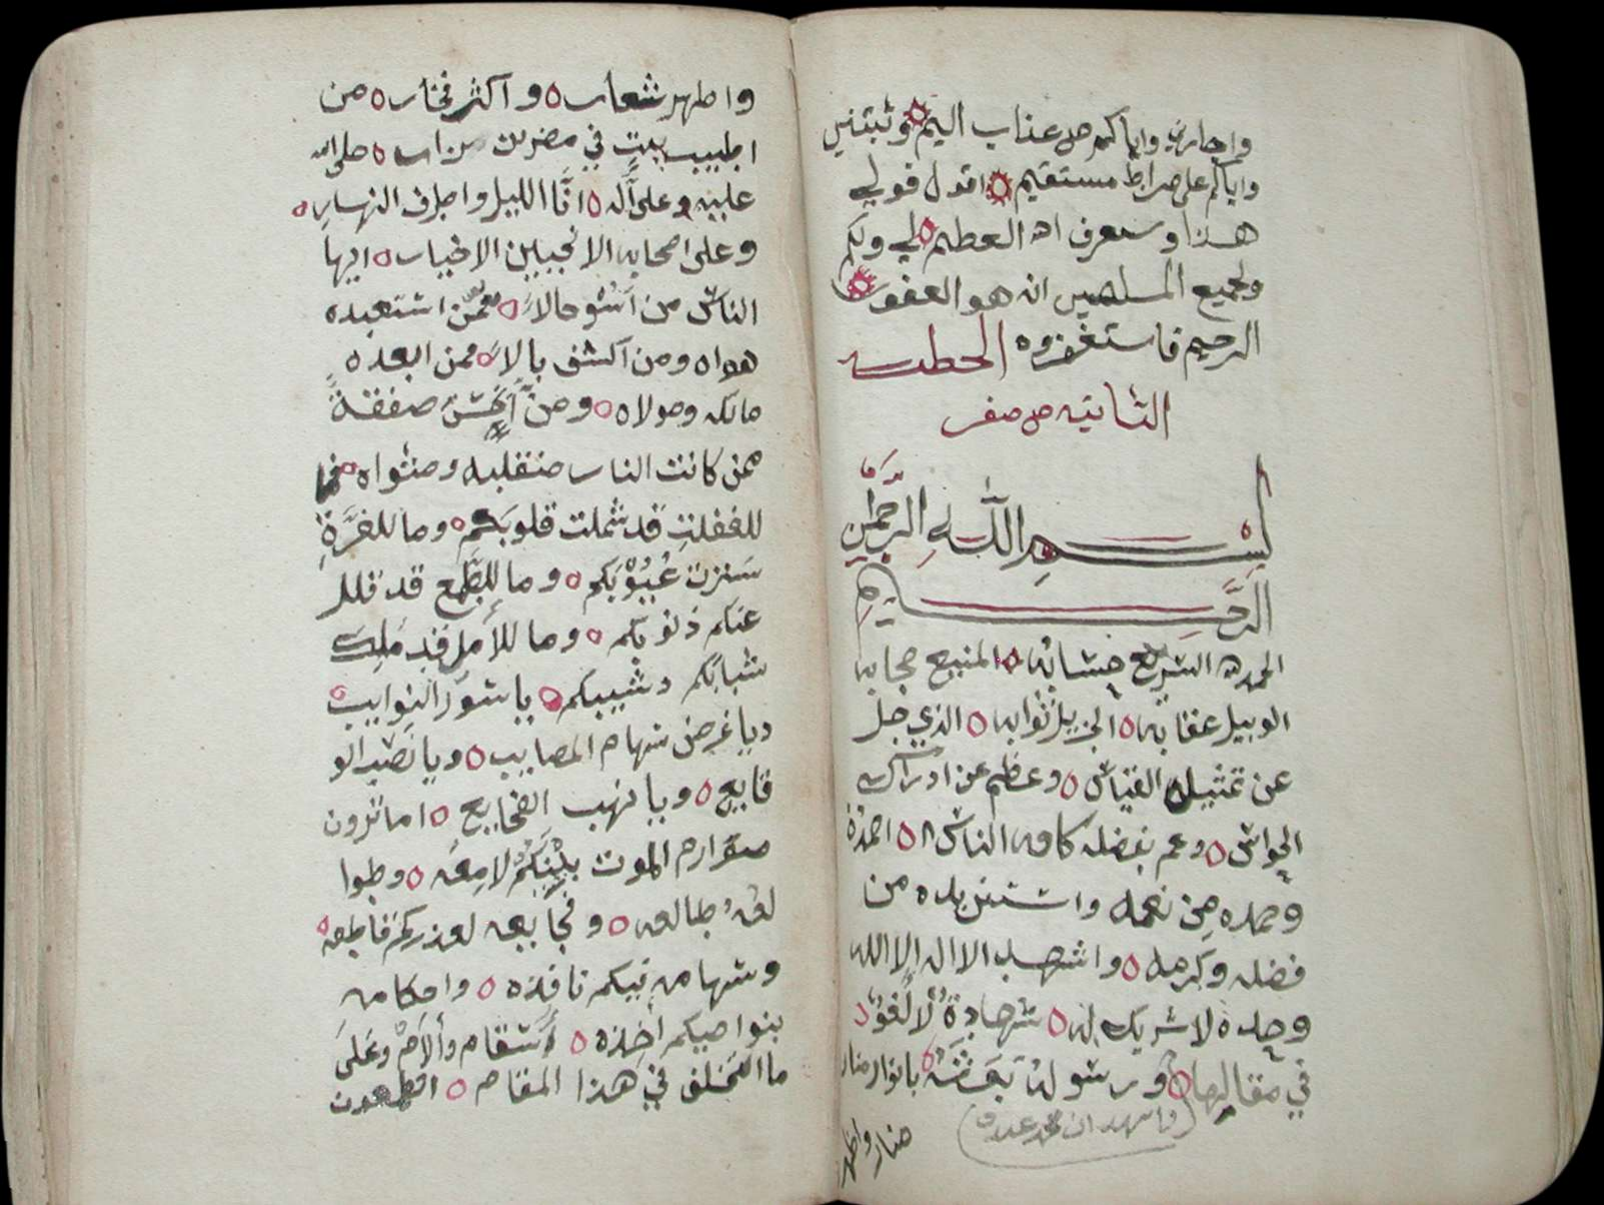 واجارني واياكم من عذاب اليم وثبتني
واياكم على صراط مستقيم اقول قولي
هذا واستغفر الله العظيم لي ولكم
ولجميع المسلمين انه هو الغفور
الرحيم فاستغفروه الخطبه
الثانيه من صفر
بسم الله الرحمن
الرحيم
الحمد لله السريع حسابه المنيع حجابه
الوبيل عقابه الجزيل ثوابه الذي جل
عن تمثيل القياس وعظم عن ادراك
الحواس وعم بفضله كافه الناس احمده
وحمده من نعمه واستزيده من
فضله وكرمه واشهد الا اله الا الله
وحده لا شريك له شهادة لا لغو
في مقالها ورسوله بعثه بانوار منار
واشهد ان محمد عبده
منار واطهر
واطهر شعار واكثر فخار من
اطيب بيت في مضر بن نزار صلى الله
عليه وعلى آله انآ الليل واطراف النهار
وعلى اصحابه الانجبين الاخيار ايها
الناس من اسو حالا ممن استعبده
هواه ومن اكسف بالا ممن ابعده
مالكه ومولاه ومن اخسر صفقة
ممن كانت النار منقلبه ومثواه فما
للغفلة قد شملت قلوبكم وما للغرة
سترت عيوبكم وما للطمع قد قلل
عنكم ذنوبكم وما للأمل قد ملك
شبابكم وشيبكم يا سور النوايب
ويا غرض سهام المصايب ويا نصب الو
قايع ويا نهب الفجايع اما ترون
صوارم الموت بينكم لامعه
طالعه وفجايعه لعذركم قاطعه
وسهامه فيكم نافذه واحكامه
بنواصيكم اخذه وعلى
ما التخلف في هذا المقام اتطمعون